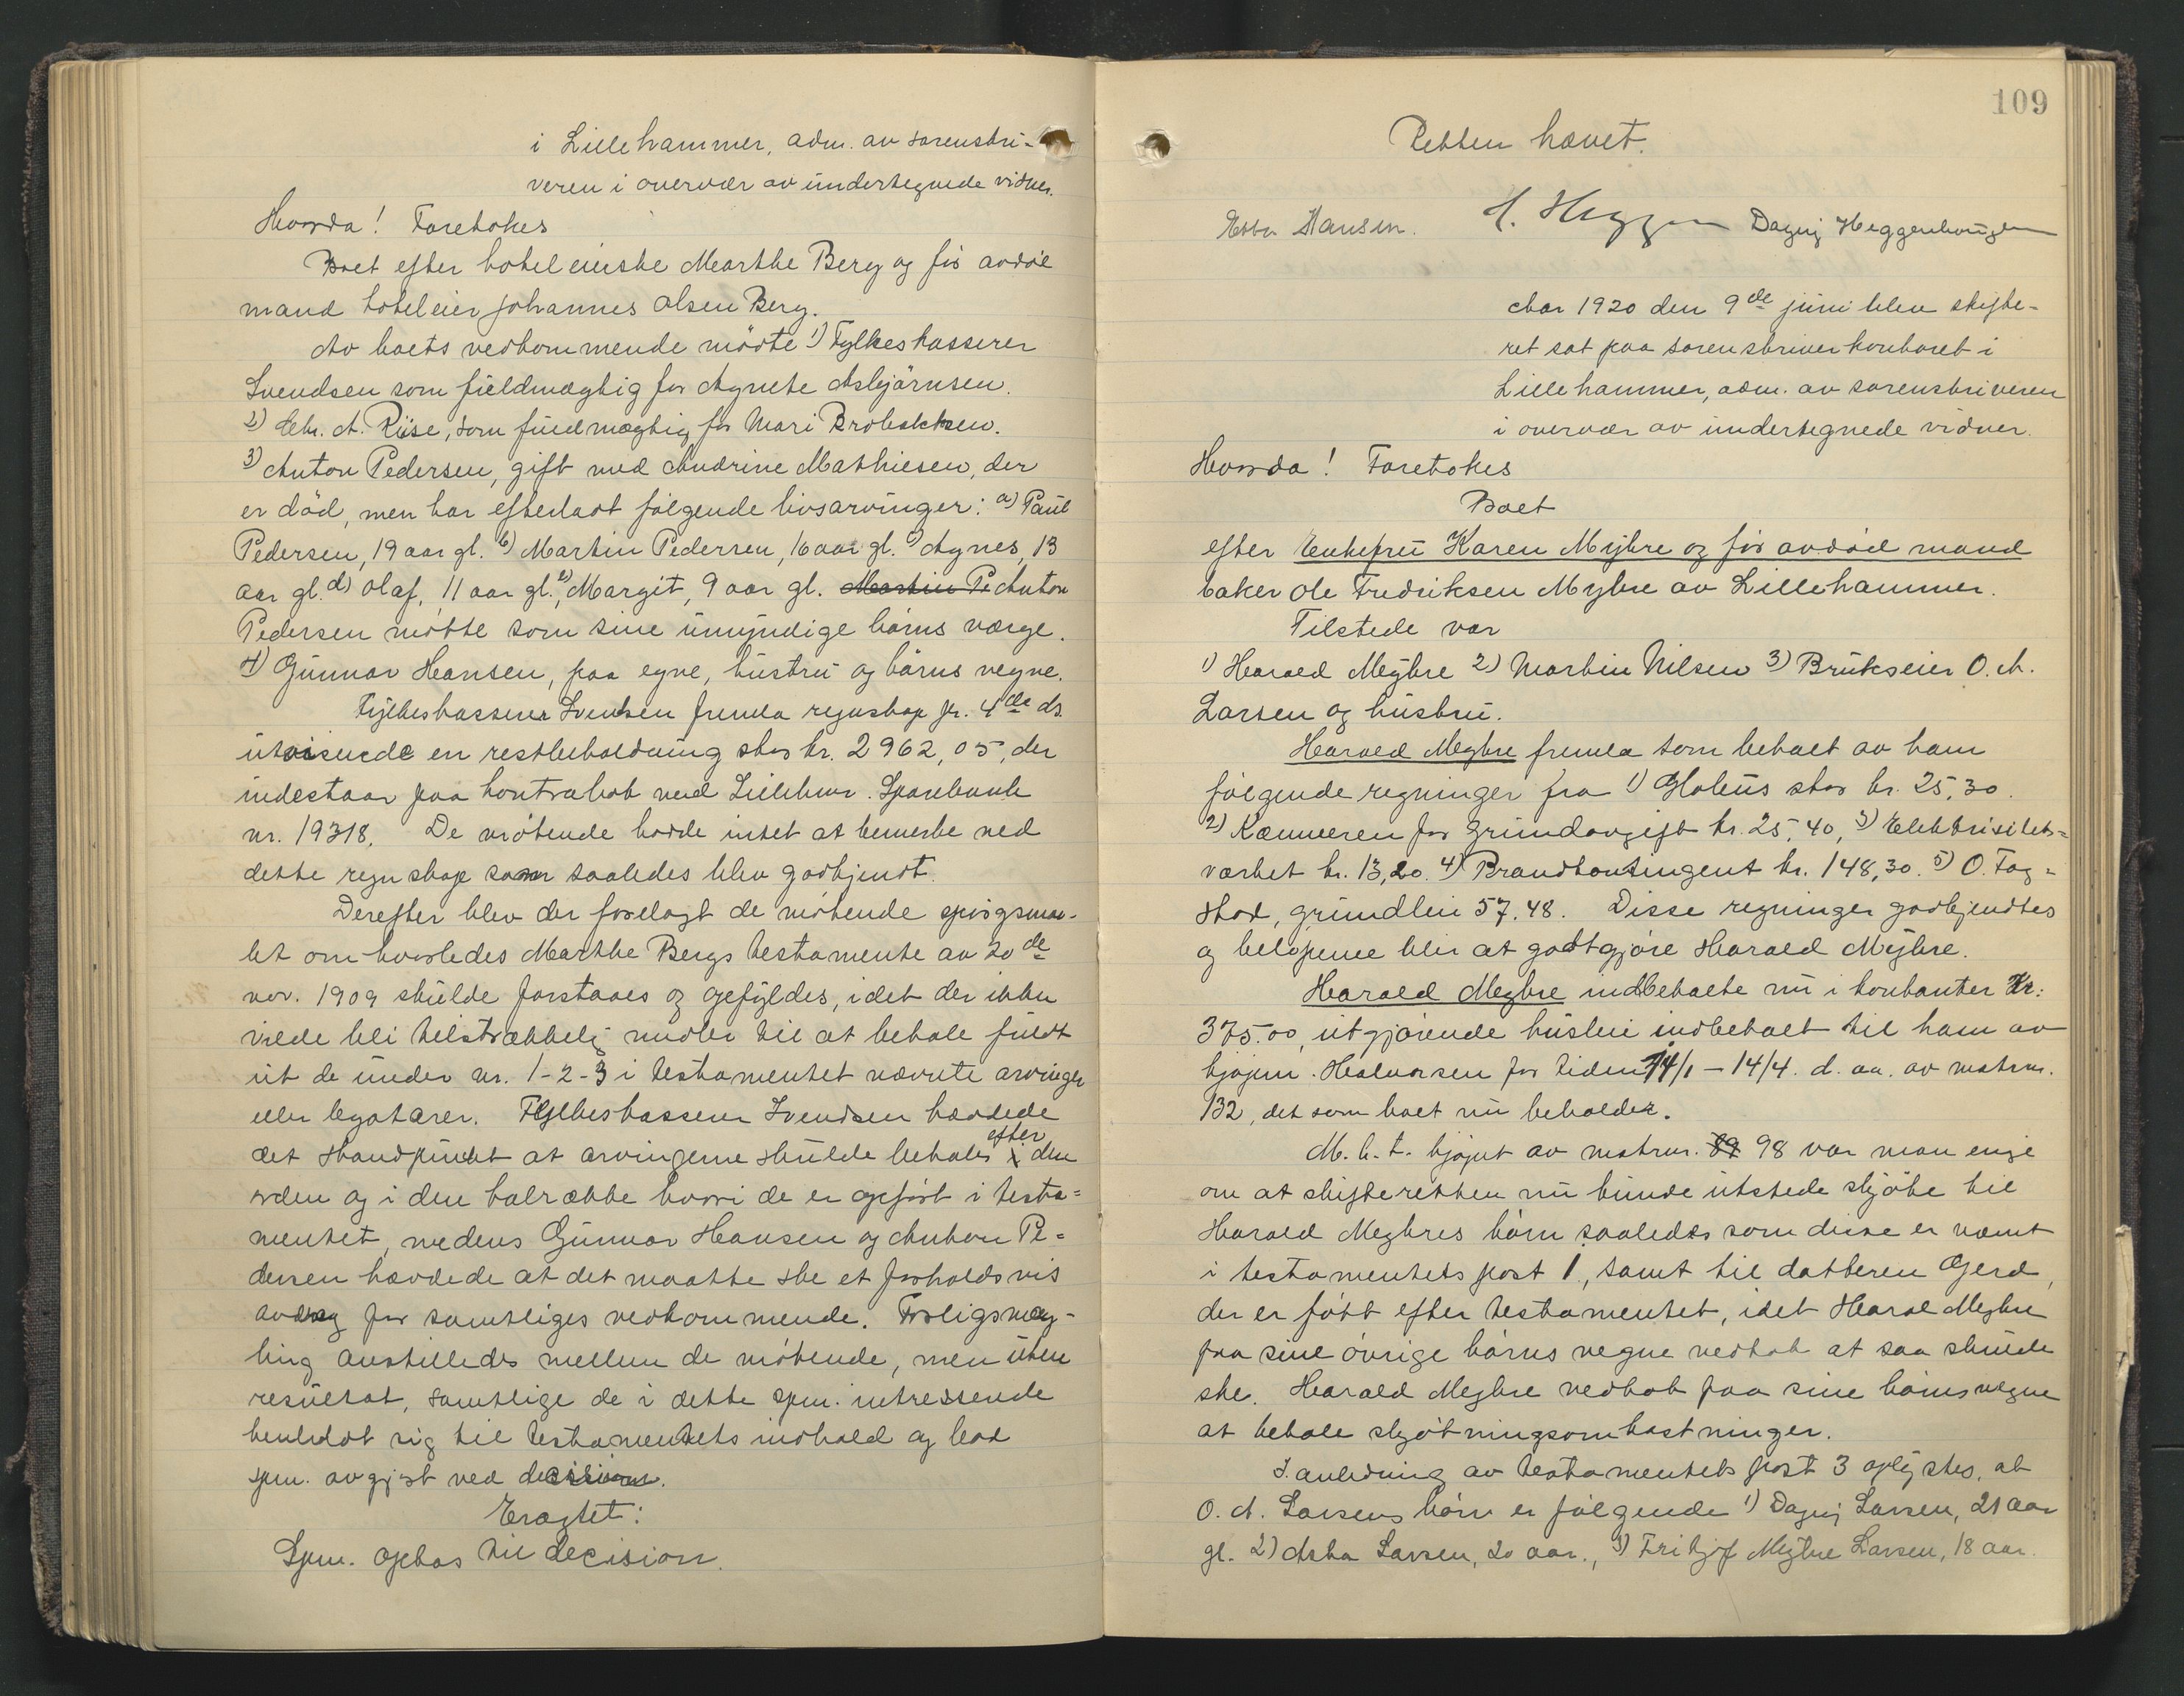 i Lillehammer, adm. av sorenskri-
veren i overvær av undertegnede vidner.
Hvorda! Foretokes
Boet efter hoteleierske Marthe Berg og før avdøe
mand hoteleier Johannes Olsen Berg.
Av boets vedkommende mødte 1) Fylkeskasserer
Svendsen som fuldmægtig for Agnete Asbjørnsen.
2) A. Riise, som fuldmægtig for Mari
3) Anton Pedersen, gift med Andrine Mathiesen, der
er død, men har efterladt følgende livsarvinger: a) Paul
Pedersen, 19 aar gl. b) Martin Pedersen, 16 aar gl. c) Agnes, 13
aar gl. d) Olaf, 11 aar gl. e) Margit, 9 aar gl. Martin Pe Anton
Pedersen møtte som sine umyndige børns værge.
4) Gunnar Hansen, paa egne, hustru og børns vegne.
Fylkeskasserer Svendsen fremla regnskap pr. 4de ds.
utvisende en restbeholdning stor kr. 2962,05, der
indestaar paa kontrabok ved Lillehmr. Sparebank
nr. 19318. De møtende hadde intet at bemerke ved
dette regnskap som saaledes blev godkjendt.
Derefter blev der forelagt de møtende spørgsmaa-
let om hvorledes Marthe Bergs testamente av 20de
nov. 1909 skulde forstaaes og opfyldes, idet der ikke
vilde bli tilstrækkelig midler til at betale fuldt
ut de under nr. 1-2-3 i testamentet nævnte arvinger
eller legatarer. Fylkeskasserer Svendsen hævdede
det standpunkt at arvingerne skulde betales i efter den
orden og i den talrække hvori de er opført i testa-
mentet, medens Gunnar Hansen og Anton Pe-
dersen hævdede at det maatte ske et forholdsvis
avdrag for samtliges vedkommende. Forligsmæg-
ling anstilledes mellem de møtende, men uten
resultat, samtlige de i dette spm. intressende
henholdt sig til testamentets indhold og bad
spm. avgjort ved decision.
Eragtet:
Spm. optas til decision.
109
Retten hævet.
Ebba Hansen. Dagny Heggenhougen
Aar 1920 den 9de juni blev skifte-
ret sat paa sorenskriverkontoret i
Lillehammer, adm. av sorenskriveren
i overvær av undertegnede vidner.
Hvorda! Foretokes
Boet
efter Enkefru Karen Myhre og før avdød mand
baker Ole Fredriksen Myhre av Lillehammer.
Tilstede var
1) Harald Myhre 2) Martin Nilsen 3) Brukseier O. A.
Larsen og hustru.
Harald Myhre fremla som betalt av ham
følgende regninger fra 1) Globus stor kr. 25,30.
2) Kæmneren for grundavgift kr. 25,40, 3) Elektrisitets-
værket kr. 13,20. 4) Brandkontingent kr. 148,30. 5) O. Fag-
stad, grundleie 57.48. Disse regninger godkjendtes
og beløpene blir at godtgjøre Harald Myhre.
Harald Myhre indbetalte nu i kontanter Kr.
375.00, utgjørende husleie indbetalt til ham av
kjøpm. Halvorsen for tiden 14/1 - 14/4. d. aa. av matrnr.
132, det som boet nu beholder.
M. h. t. kjøpet av matrnr. 89 98 var man enige
om at skifteretten nu kunde utstede skjøte til
Harald Myhres børn saaledes som disse er nævnt
i testamentets post 1, samt til datteren Gerd,
der er født efter testamentet, idet Harald Myhre
paa sine øvrige børns vegne vedtok at saa skulde
ske. Harald Myhre vedtok paa sine børns vegne
at betale skjøtningsomkostninger.
I anledning av testamentets post 3 oplystes, at
O. A. Larsens børn er følgende 1) Dagny Larsen, 21 aar
gl. 2) Asta Larsen, 20 aar., 3) Fritjof Myhre Larsen, 18 aar.